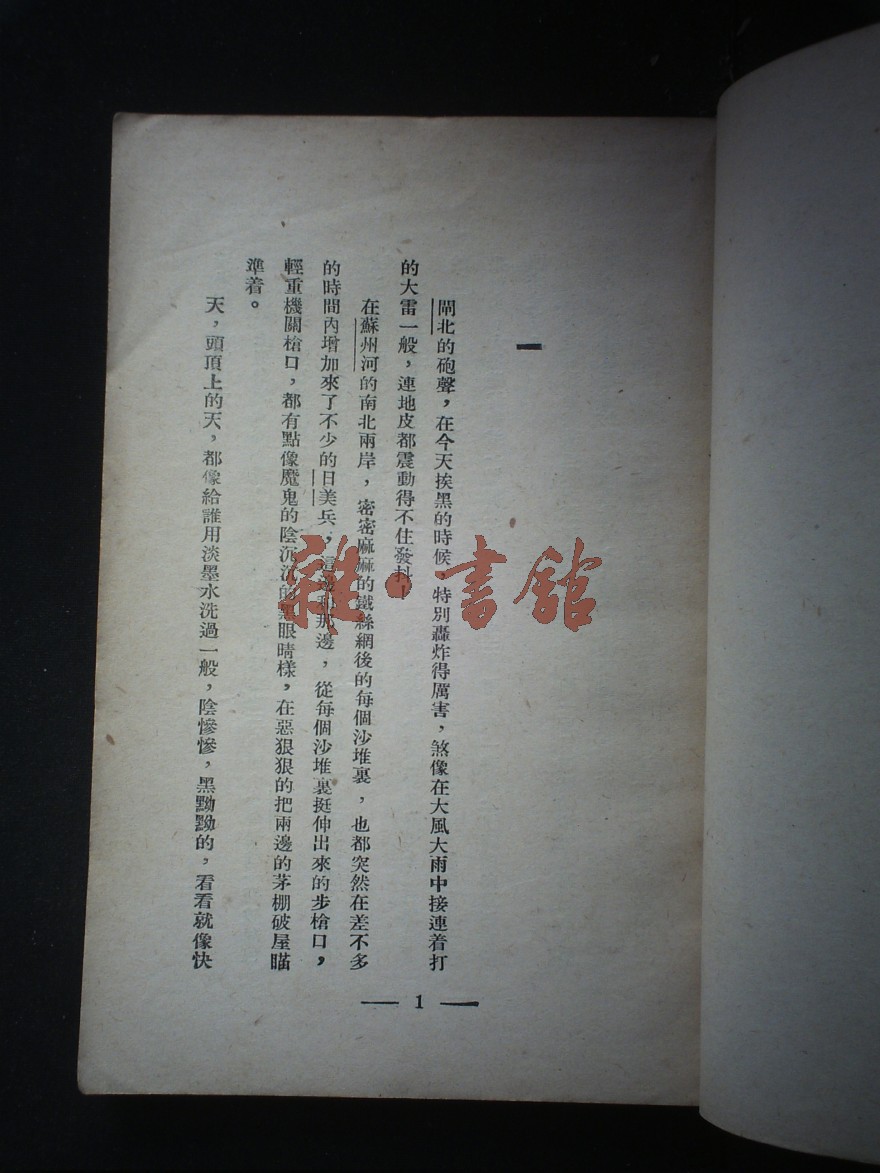 一
閘北的砲聲，在今天挨黑的時候，特別轟炸得厲害，煞像在大風大雨中接連着打
的大雷一般，連地皮都震動得不住發抖！
在蘇州河的南北兩岸，密密麻麻的鐵絲網後的每個沙堆裏，也都突然在差不多
的時間內增加來了不少的日美兵，這邊和那邊，從每個沙堆裏挺伸出來的步槍口，
輕重機關槍口，都有點像魔鬼的陰沉沉的黑眼睛樣，在惡狠狠的把兩邊的茅棚破屋瞄
準着。
天，頭頂上的天，都像給誰用淡墨水洗過一般，陰慘慘，黑黝黝的，看看就像快
— 1 —
雜·書館